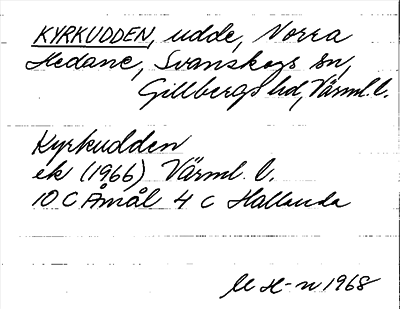 KYRKUDDEN, udde, Norra
Hedane, Svanskogs sn,
Gillbergs hd, Värml. l.
Kyrkudden
ek (1966) Värml. l.
10 C Åmål 4 c Hallanda
M H-n 1968